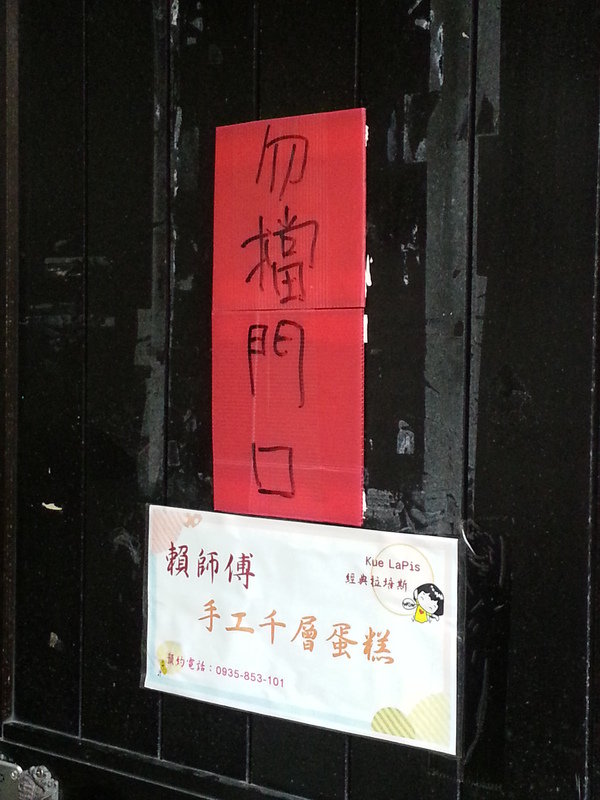 勿擋門口
賴師傅
Kue LaPis
經典拉培斯
手工千層蛋糕
預約電話：0935-853-101